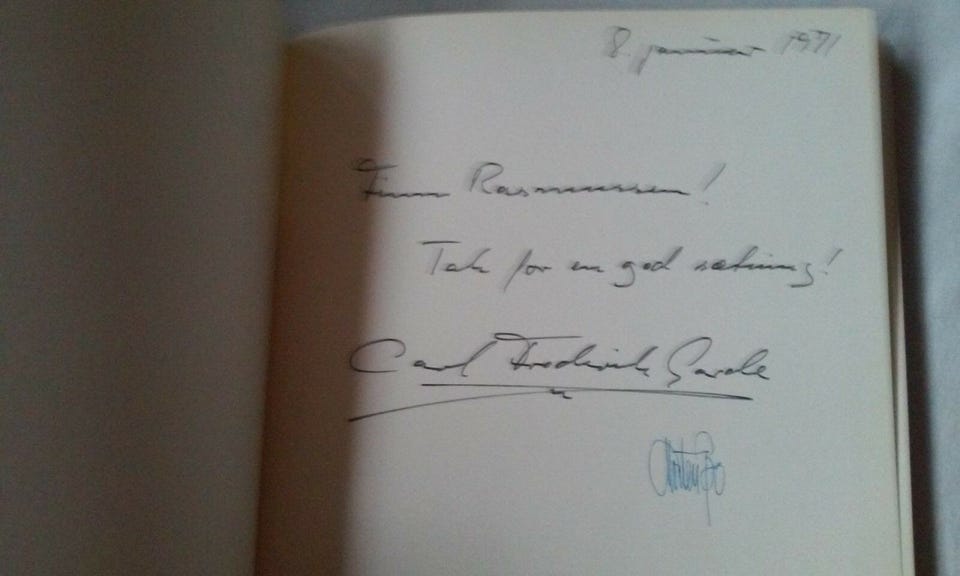 8. januar 1971
Finn Rasmussen!
Tak for en god sætning!
Carl Frederik Garde
Morten Bo